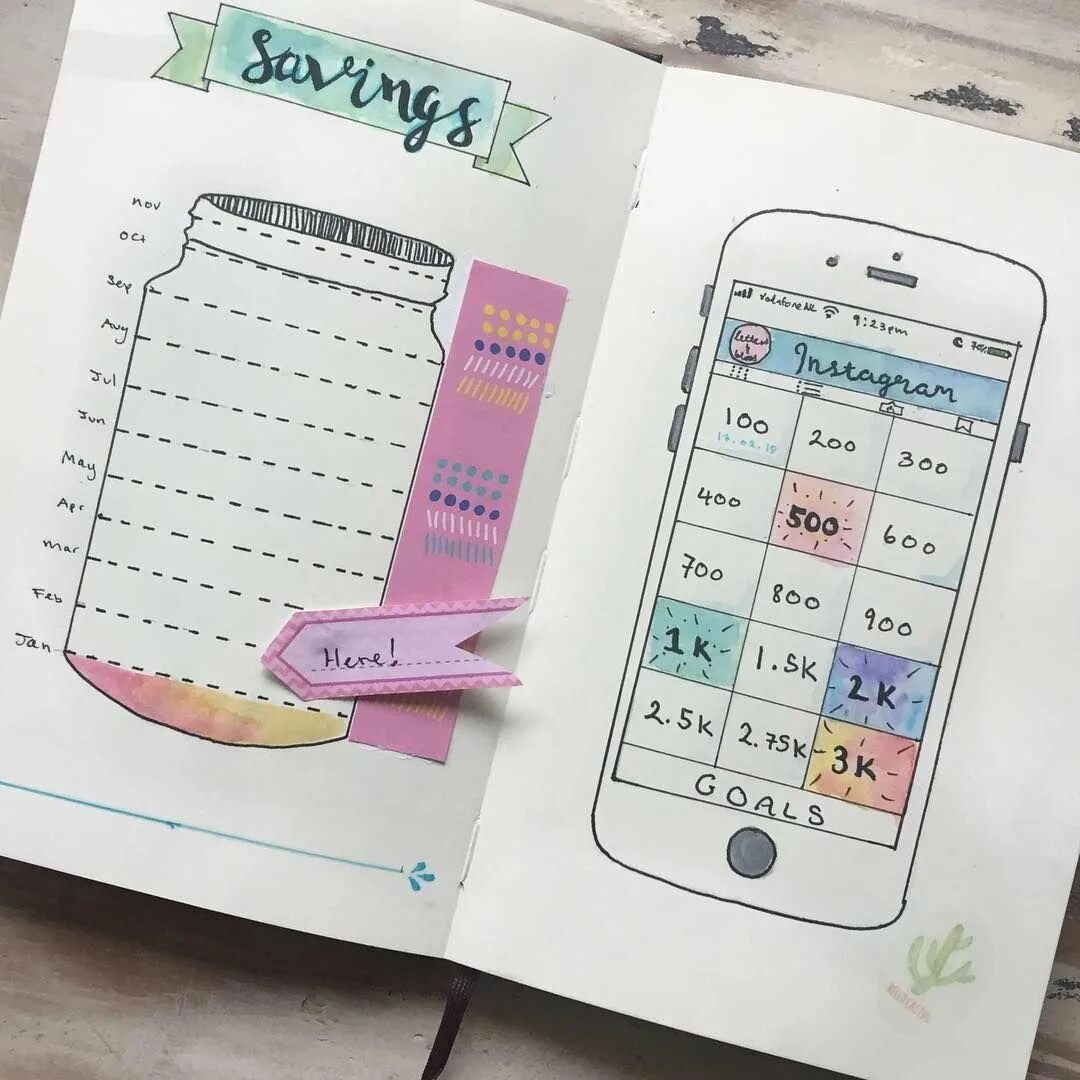 Savings
nov
oct
Sep
Aug
Jul
Jun
May
Apr
Mar
Feb
Jan
Here!
VodafoneNL 9:23pm 70%
Instagram
100 200 300
400 500 600
700 800 900
1K 1.5K 2K
2.5K 2.75K 3K
GOALS